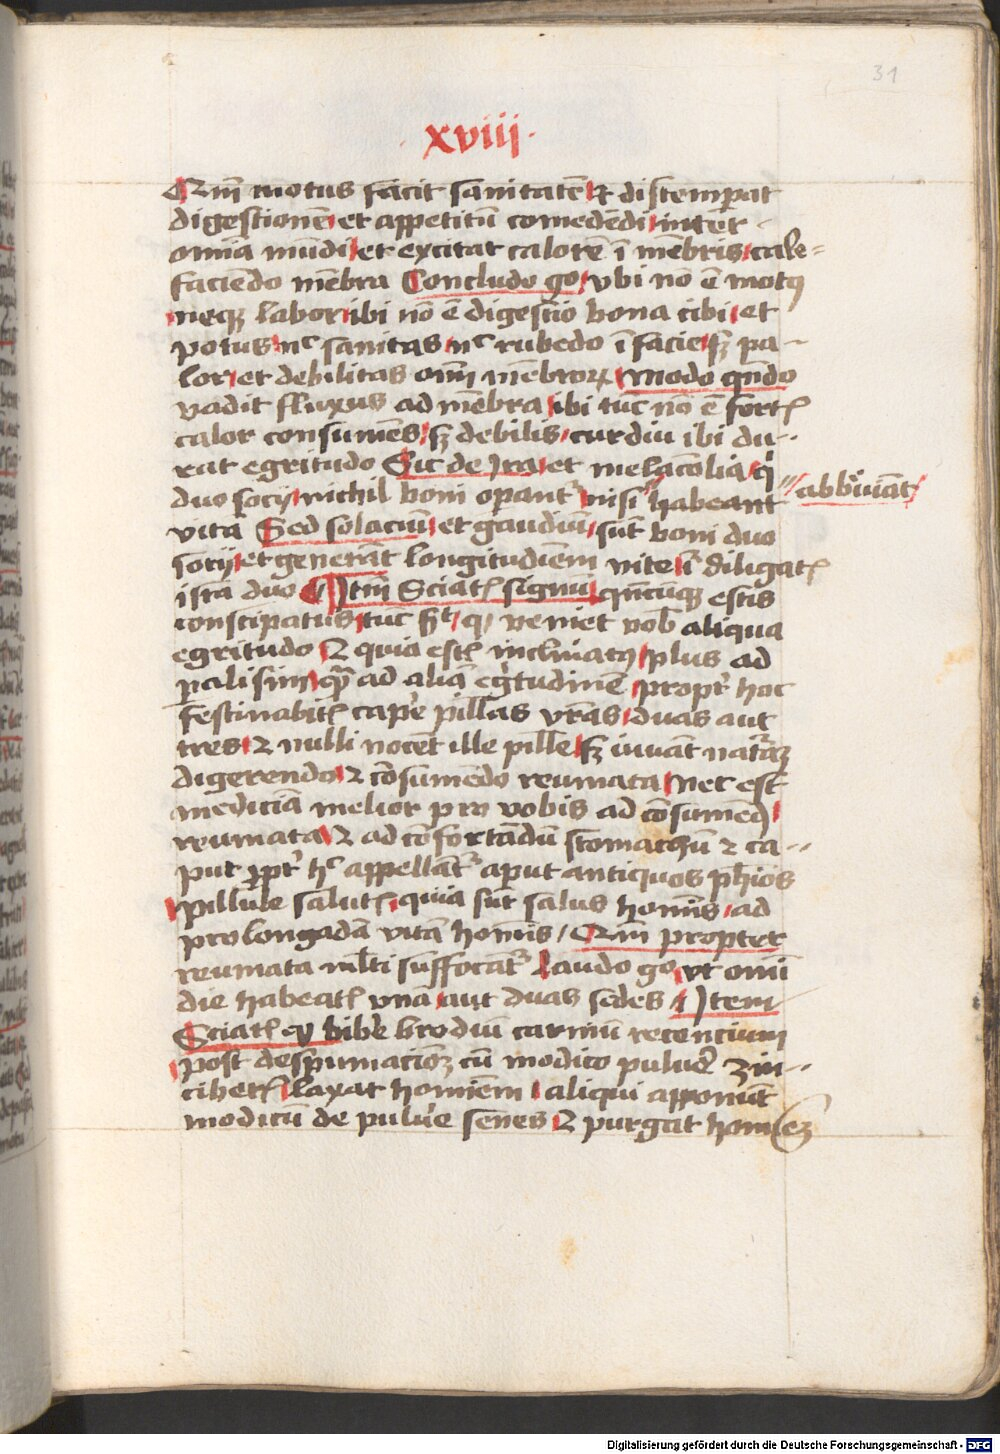 31
xviii
Qm̄ motus facit sanitatē et distemperat
digestionē et appetitū comedēdi inter
omīa mūdi et excitat calorē ī mēbris cale=
faciēdo mēbra Concludo gͦ vbi nō ē motꝰ
neqꝫ labor ibi nō ē digestio bona cibi et
potus nͨ sanitas nͨ rubedo ī facie sꝫ pa-
lor et debilitas oīm mēbroꝝ Modo qn̄do
vadit fluxus ad mēbra ibi tūc nō ē fort̄
calor consumēs sꝫ debilis cur diu ibi du-
rat egritudo Sic de Ira et melācolia qͥ
duo socij nichil boni operant᷑ nisi habeant
abbͤuiāt
vitā Sed solaciū et gaudiū sūt boni duo
socij et generāt longitudiēm vite si diligat᷑
ista duo Itm̄ Sciat᷑ signū qn̄cūqꝫ estis
constipatus tūc sͭ qꝫ veniet vob̄ aliqua
egritudo Et quia est᷑ inclinatꝰ plus ad
ꝑalisim qͣ ad aliā egͥtudinē propt᷑ hoc
festinabit᷑ capͤe pillʼas vr̄as duas aut
tres Et nulli nocēt ille pillʼe sꝫ iuuāt naturā
digerendo Et cōsumēdo reumata Nec est
mediciā melior pro vobis ad cōsumēd
reumata Et ad cōfortādū stomacħū Et ca-
put ꝓpt᷑ hͨ appellāt᷑ aput antiquos pħios
pillule salut᷑ quia sūt salus homīs ad
prolongādā vitā homīs Qm̄ propter
reumata mlʼti suffocāt᷑ Laudo gͦ vt omī
die habeat᷑ vnā aut duas sedes Item
Sciat᷑ qꝫ bibͤe brodiū carniū recencium
post despumaciōꝫ cū modico puluerͤ zin-
ciber᷑ laxat homiēm aliqui apponūt
modicū de puluͤe senes Et purgat homīeꝫ
Digitalisierung gefördert durch die Deutsche Forschungsgemeinschaft - DFG